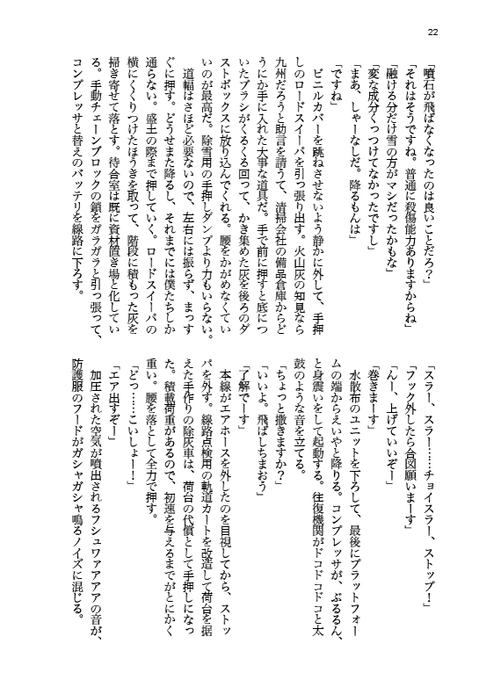 22
「噴石が飛ばなくなったのは良いことだろ？」
「それはそうですね。普通に殺傷能力ありますからね」
「融ける分だけ雪の方がマシだったかもな」
「変な成分くっつけてなかったですし」
「まあ、しゃーなしだ。降るもんは」
「ですね」
　ビニルカバーを跳ねさせないよう静かに外して、手押
しのロードスイーパを引っ張り出す。火山灰の知見なら
九州だろうと助言を請うて、清掃会社の備品倉庫からど
うにか手に入れた大事な道具だ。手で前に押すと底につ
いたブラシがくるくる回って、かき集めた灰を後ろのダ
ストボックスに放り込んでくれる。腰をかがめなくてい
いのが最高だ。除雪用の手押しダンプより力もいらない。
　道幅はさほど必要ないので、左右には振らず、まっす
ぐに押す。どうせまた降るし、それまでには僕たちしか
通らない。盛土の際まで押していく。ロードスイーパの
横にくくりつけたほうきを取って、階段に積もった灰を
掃き寄せて落とす。待合室は既に資材置き場と化してい
る。手動チェーンブロックの鎖をガラガラと引っ張って、
コンプレッサと替えのバッテリを線路に下ろす。
「スラー、スラー……チョイスラー、ストップ！」
「フック外したら合図願いまーす」
「んー、上げていいぞー」
「巻きまーす」
　水散布のユニットを下ろして、最後にプラットフォー
ムの端からえいやと降りる。コンプレッサが、ぶるるん、
と身震いをして起動する。往復機関がドコドコドコと太
鼓のような音を立てる。
「ちょっと撒きますか？」
「いいよ。飛ばしちまおう」
「了解でーす」
　本線がエアホースを外したのを目視してから、ストッ
パを外す。線路点検用の軌道カートを改造して荷台を据
えた手作りの除灰車は、荷台の代償として手押しになっ
た。積載荷重があるので、初速を与えるまでがとにかく
重い。腰を落として全力で押す。
「どっ……こいしょー！」
「エア出すぞー」
　加圧された空気が噴出されるフシュワァアアアの音が、
防護服のフードがガシャガシャ鳴るノイズに混じる。